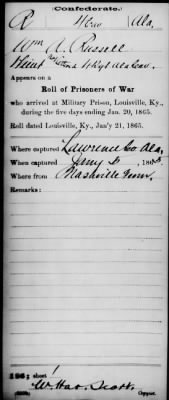 Confederate.
R 4 Cav Ala.
Wm A. Russell
Appears on a
Roll of Prisoners of War
who arrived at Military Prison, Louisville, Ky.,
during the five days ending Jan. 20, 1865.
Roll dated Louisville, Ky., Jan'y 21, 1865.
Where captured Lawrence Co Ala.
When captured Jany 5, 1865
Where from Nashville Tenn.
Remarks:
sheet 1
Copyist.